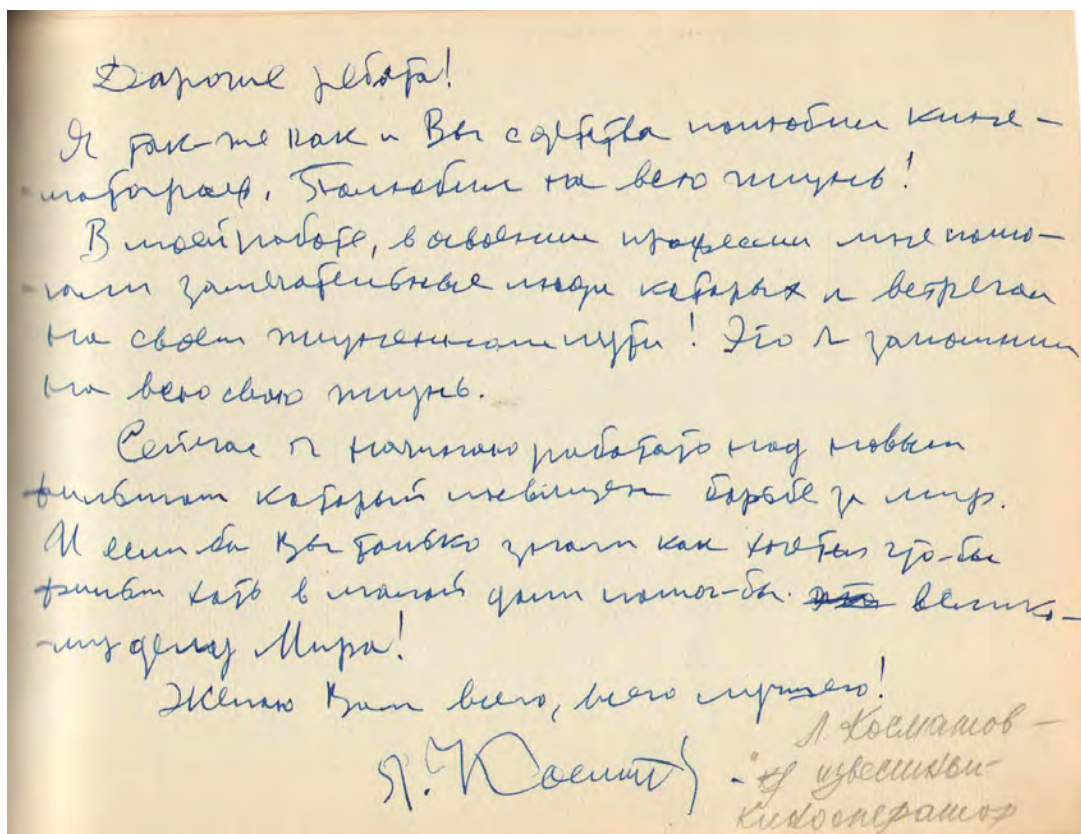 Дорогие ребята!
Я так-же как и Вы с детства полюбил кине-
-матограф. Полюбил на всю жизнь!
В моей работе, в освоении профессии мне помо-
-гали замечательные люди которых я встречал
на своем жизненном пути! Это я запомнил
на всю свою жизнь.
Сейчас я начинаю работать над новым
фильмом который посвящен борьбе за мир.
И если бы Вы только знали как хочется что-бы
фильм хоть в малой доли помог-бы велико-
-му делу Мира!
Желаю Вам всего, всего лучшего!
Л. Косматов –
известный
кинооператор